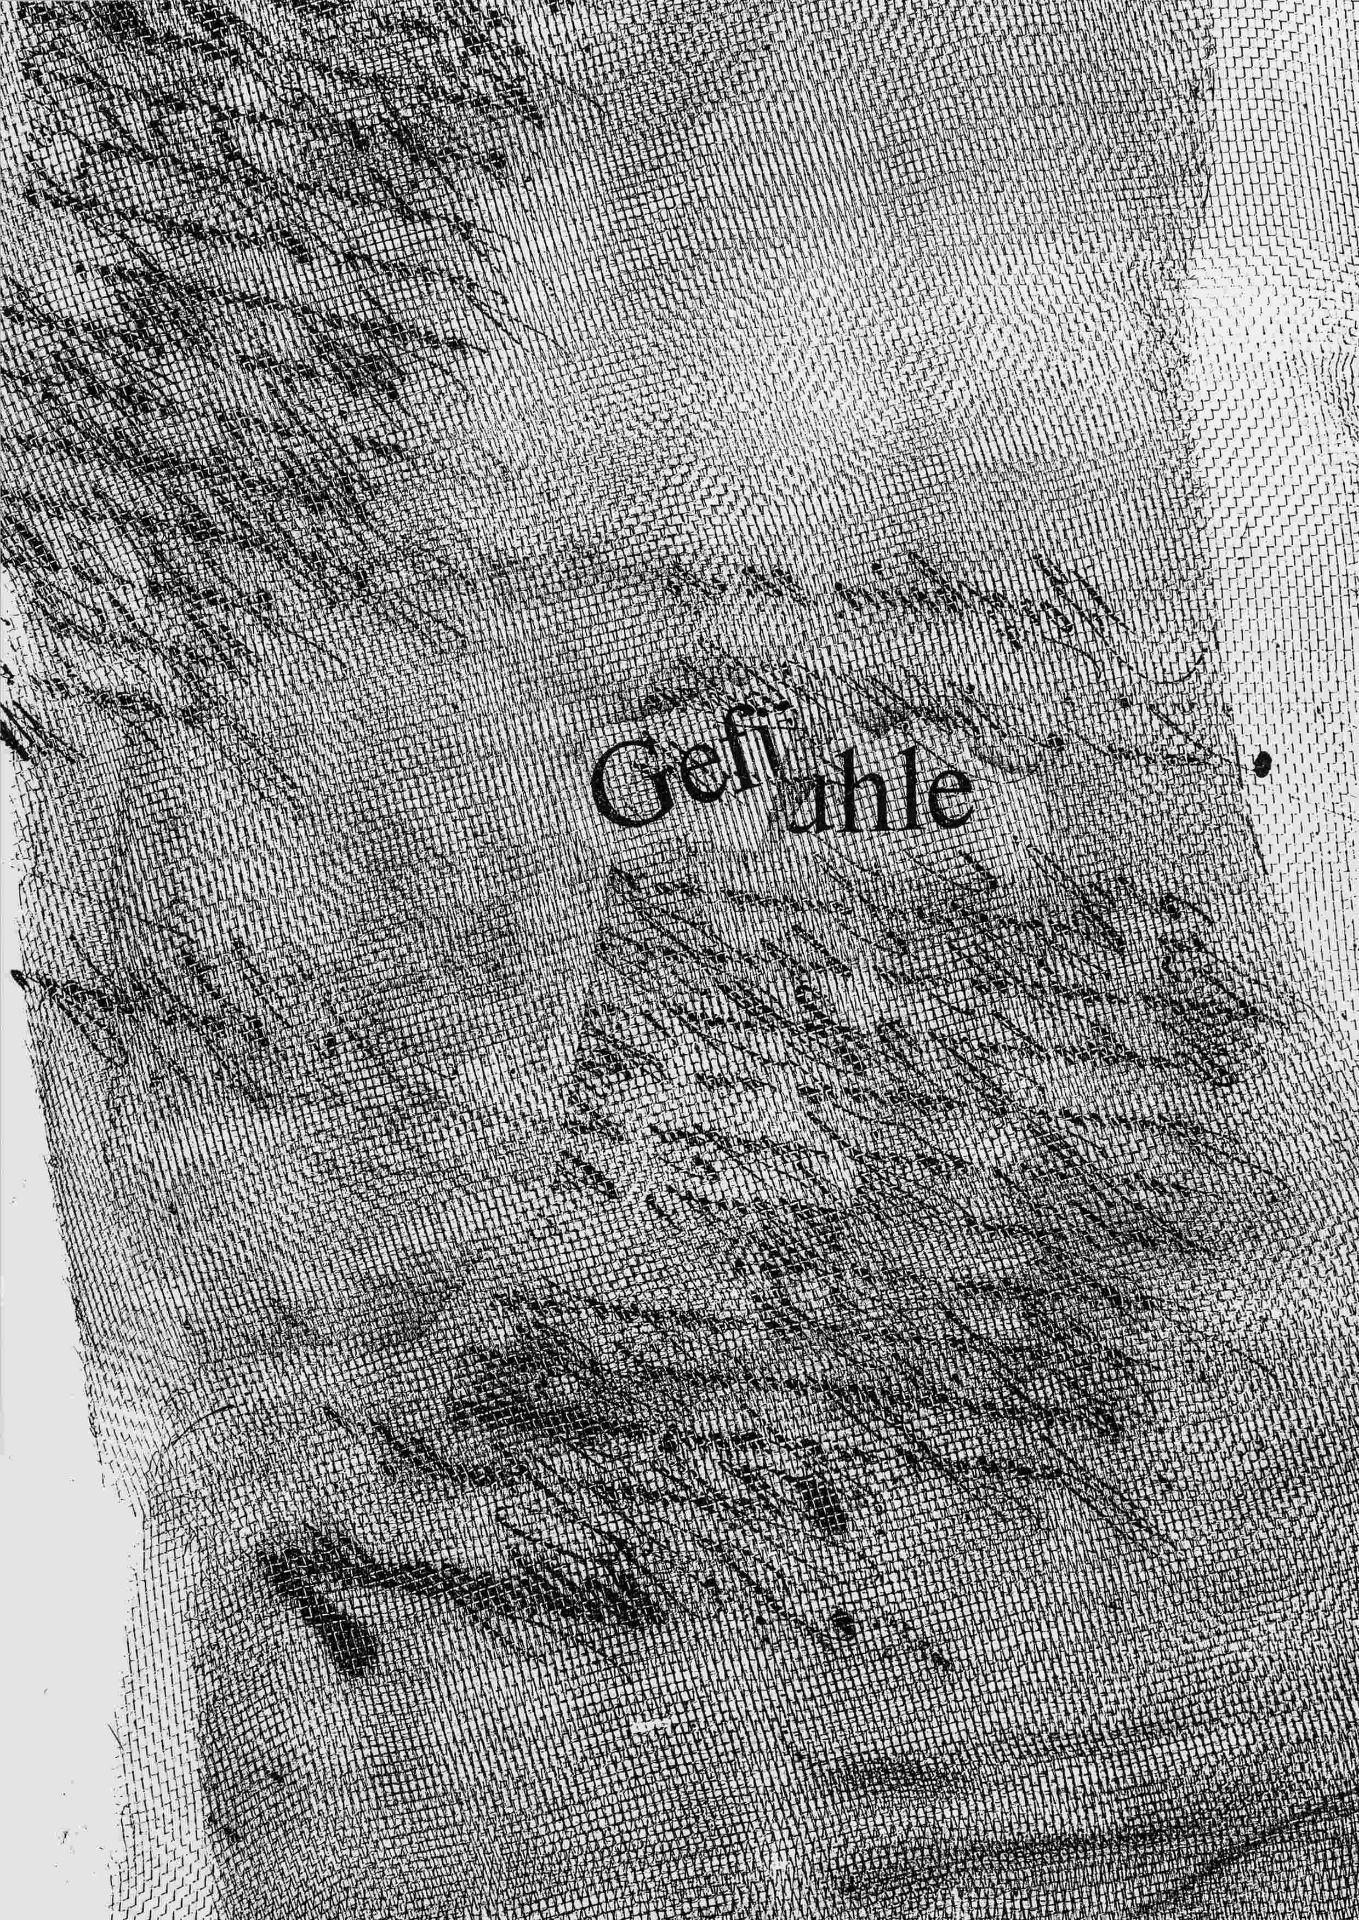 Gefühle